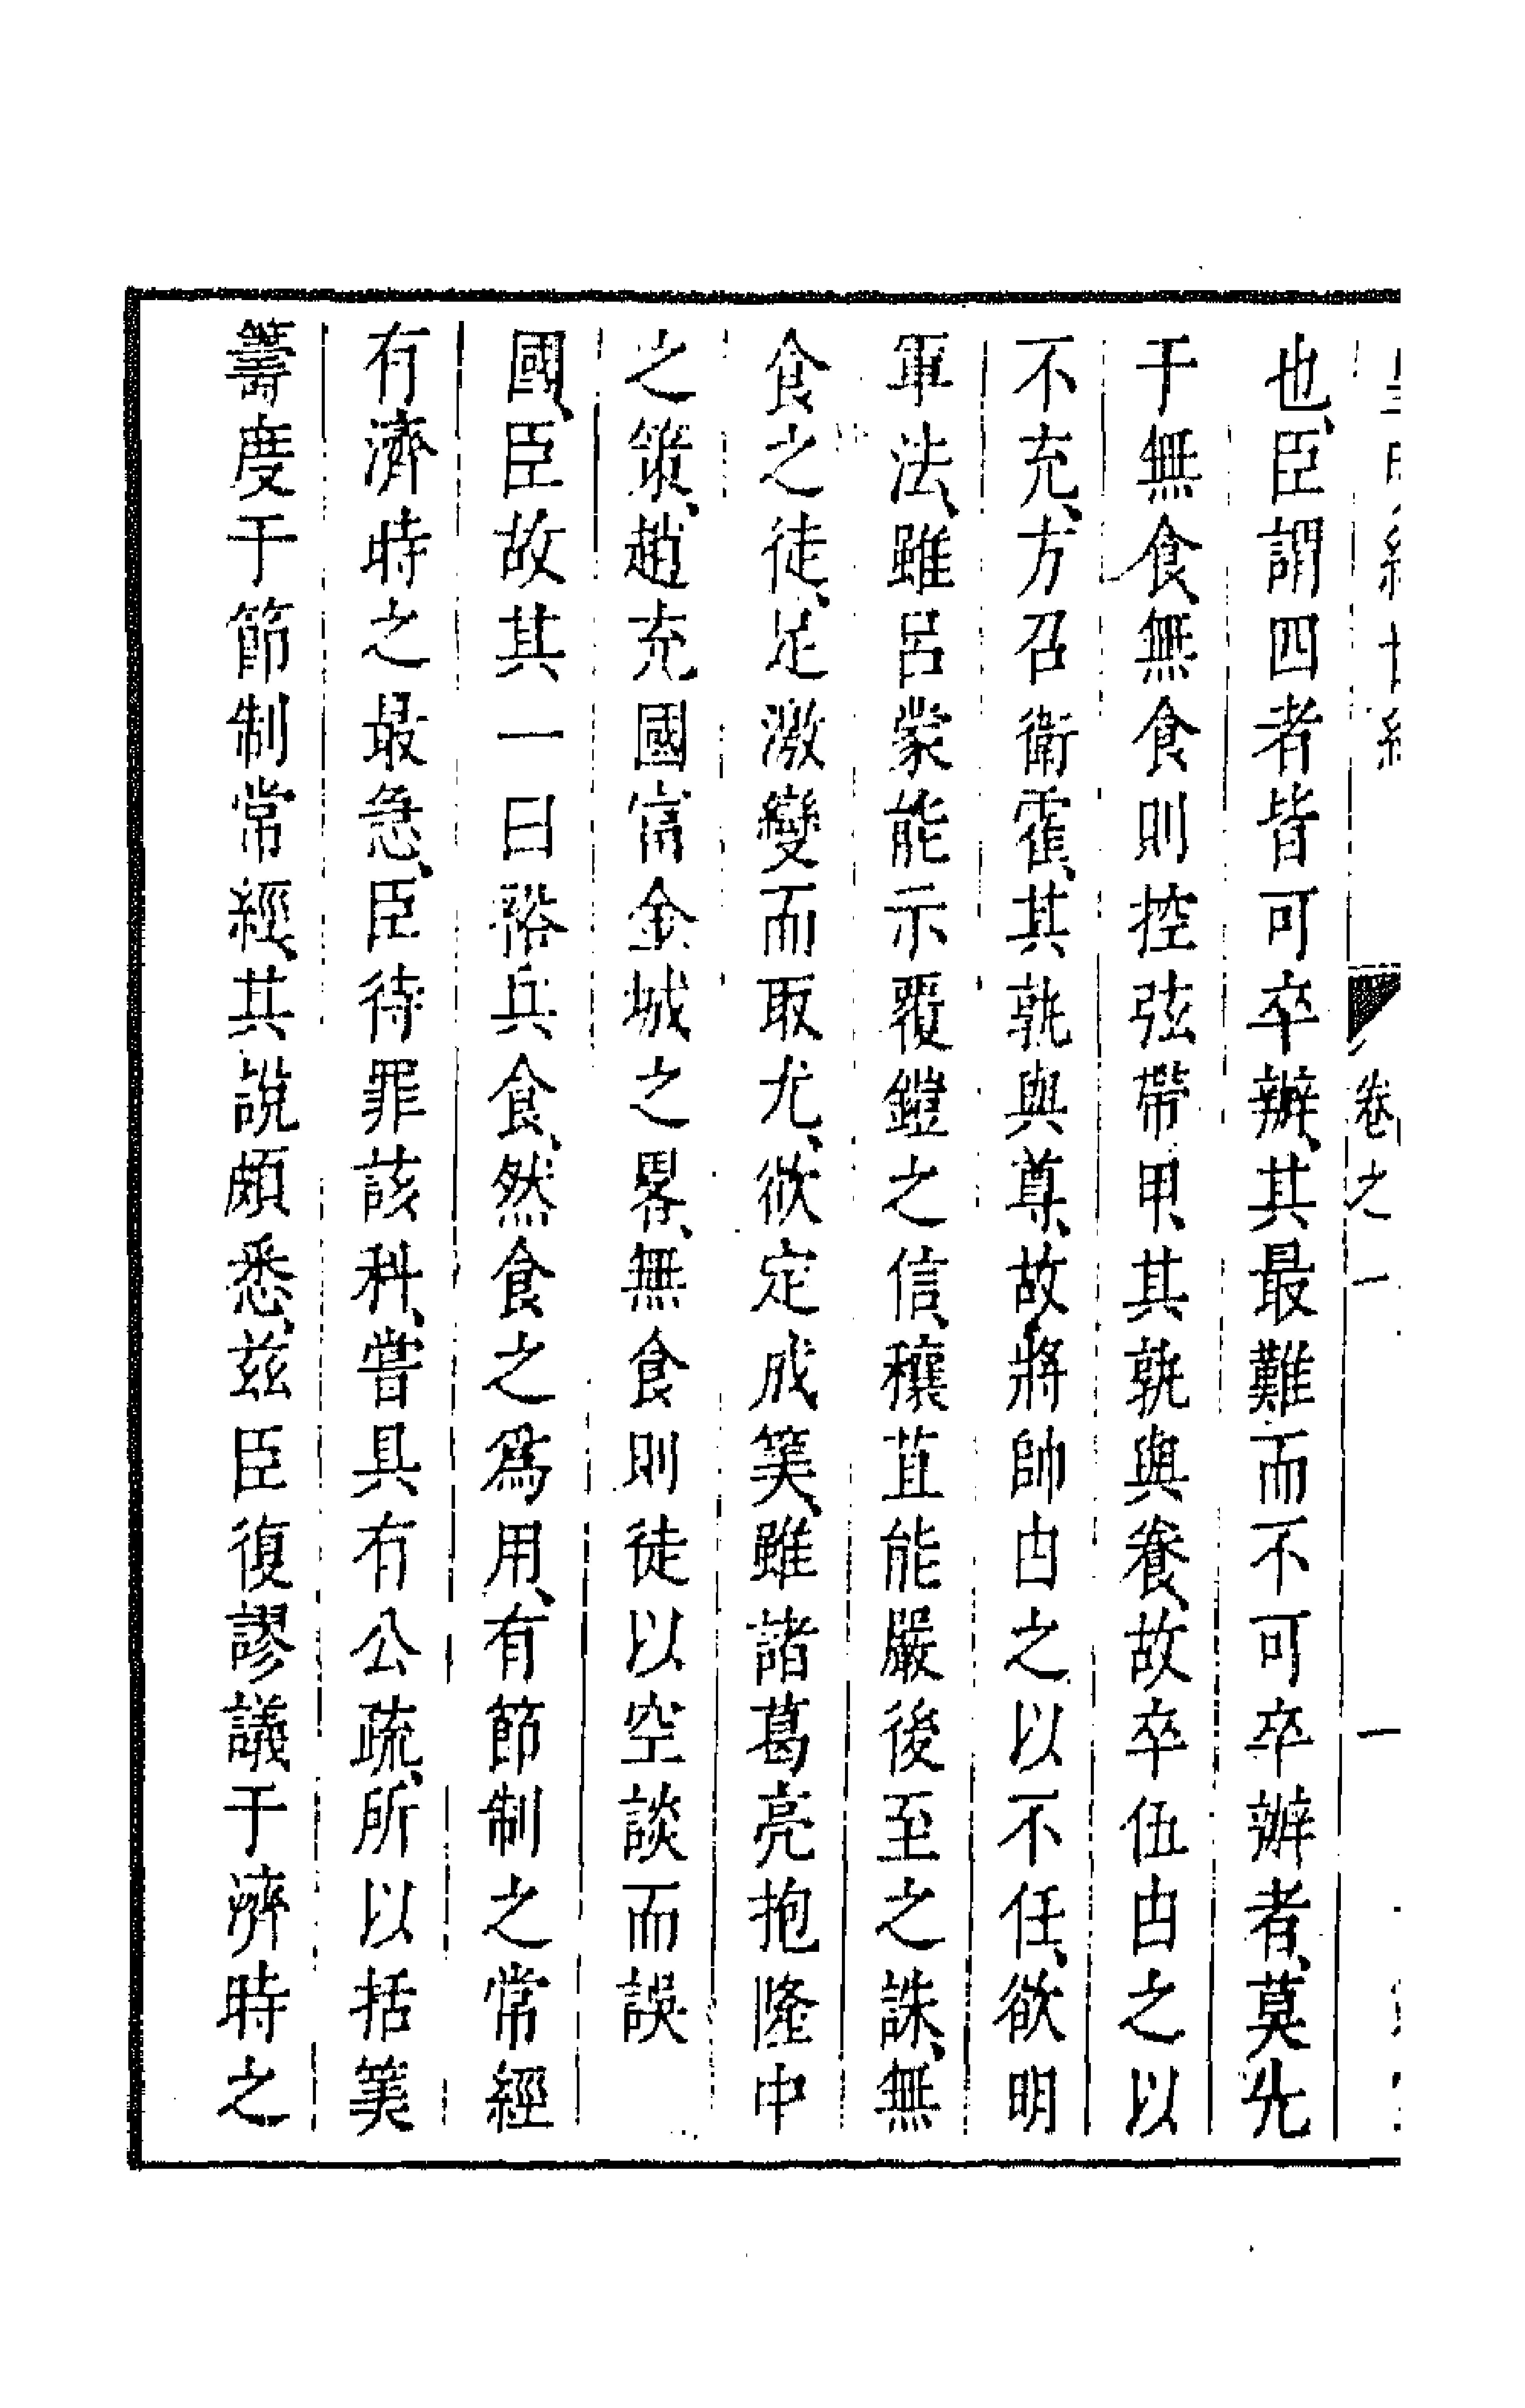 卷之一 一
也、臣謂四者皆可卒辦、其最難而不可卒辦者、莫先
于無食、無食則控弦帶甲、其孰與養、故卒伍由之以
不充、方召衛霍、其孰與尊、故將帥由之以不任、欲明
軍法、雖呂蒙能示覆鎧之信、穰苴能嚴後至之誅、無
食之徒、足激變而取尤、欲定成筭、雖諸葛亮抱隆中
之策、趙充國富金城之畧、無食則徒以空談而誤
國、臣故其一曰裕兵食、然食之爲用、有節制之常經
有濟時之最急、臣待罪該科、嘗具有公疏、所以括筭
籌度于節制常經、其說頗悉、玆臣復謬議于濟時之